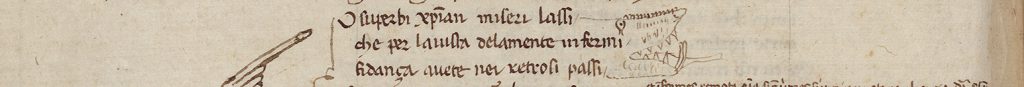 O superbi xp̄ian miseri lassi
che per lauista delamente infermi
fidança auete nei retrosi passi